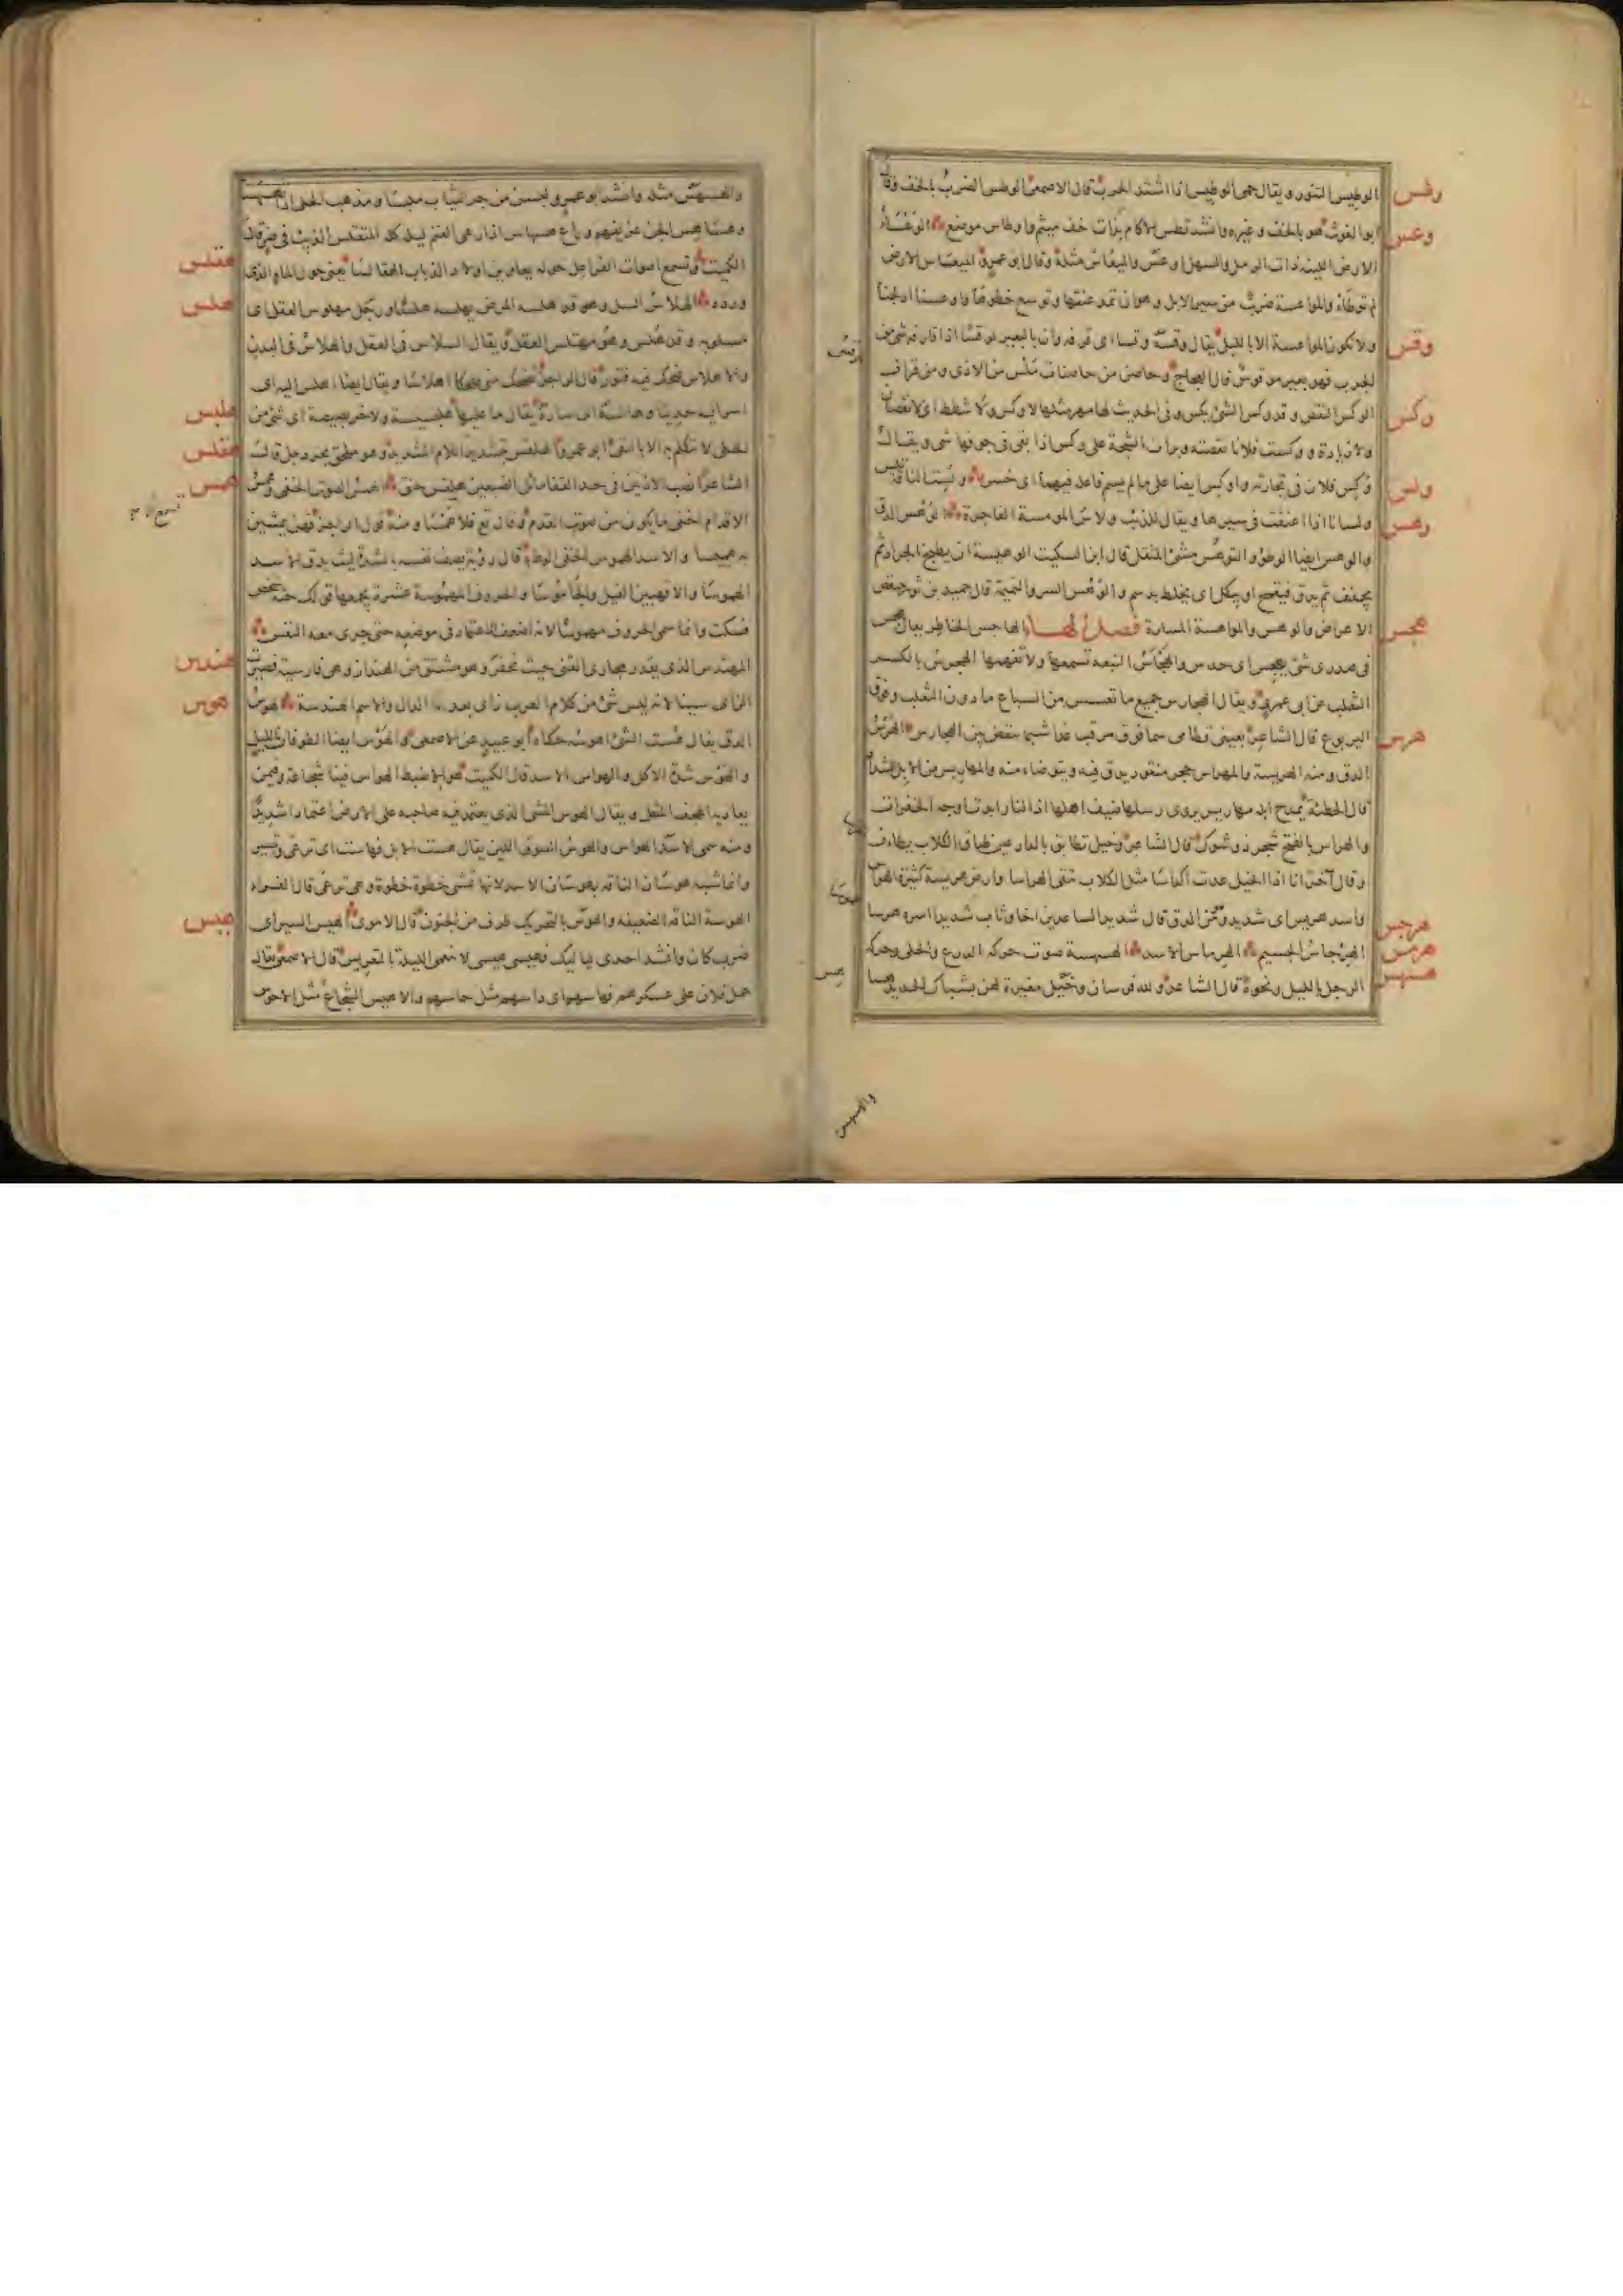 الوطيس التنور ويقال حمى الوطيس اذا اشتد الحرب قال الاصمعى الوطس الضرب بالخف وقال
ابو الغوث هو بالخف وغيره وانشد تطس الاكام بذات خف ميثم واوطاس موضع
وعس
الارض اللينة ذات الرمل والسهل اوعس والميعاس مثله وقال ابو عمرو الميعاس الارض
لم توطأ والمواعسة ضرب من سير الابل وهو ان تمد عنقها وتوسع خطوها وواعسنا ادلجنا
ولا تكون المواعسة الا بالليل يقال وقسه وقسا اى قرفه وان بالبعير لوقسا اذا قارفه شئ من
وقس
الجرب فهو بعير موقوس قال العجاج وحاصن من حاصنات ملس من الاذى ومن قراف
الوكس النقص وقد وكس الشئ يكس وفى الحديث لها مهر مثلها لا وكس ولا شطط اى لا نقصان
وكس
ولا زيادة ووكست فلانا نقصته وبرات الشجة على وكس اذا بقى فى جوفها شى ويقال
وكس فلان فى تجارته واوكس ايضا على ما لم يسم فاعله فيهما اى خسر ولست الناقة
ولس
ولسانا اذا اعنقت فى سيرها ويقال للذيب ولاس المومسة الفاجرة الوهس الدق
وهس
والوهس ايضا الوطؤ والتوهس مشى المثقل قال ابن السكيت الوهيسة ان يطبخ الجراد ثم
يجفف ثم يدق فيقمح او يبكل اى يخلط بدسم والوهس السر والنميمة قال حميد بن ثور
الاعراض والوهس والمواهسة المسارة فصل الهاء الهاجس الخاطر يقال هجس
هجس
فى صدرى شئ يهجس اى حدس والهجس النبأة تسمعها ولا تفهمها الهجرس بالكسر
الثعلب عن ابى عمرو ويقال الهجارس جميع ما تعسس من السباع ما دون الثعلب وفوق
اليربوع قال الشاعر بعينى قطامى سما فوق مرقب غدا شبما ينقض بين الهجارس الهرس
هرس
الدق ومنه الهريسة والمهراس حجر منقور يدق فيه ويتوضاء منه والمهاريس من الابل الشداد
قال الحطيئة يمدح ابله مهاريس يروى رسلها ضيف اهلها اذا النار ابدت اوجه الخفرات
والهراس بالفتح شجر ذو شوك قال الشاعر وخيل تطابق بالدارعين طباق الكلاب يطأن
وقال آخر انا اذا الخيل عدت اكداسا مثل الكلاب تتقى الهراسا وارض هريسة كثيرة الهراس
واسد هريس اى شديد وهو من الدق قال شديد الساعدين اخا وثاب شديدا اسره هرسا
هرجس
الهرجاس الجسيم الهرماس الاسد الهسهسة صوت حركة الدرع والحلى وحركة
هرمس
الرجل بالليل ونحوه قال الشاعر ولله فرسان وخيل مغيرة لهن بشباك الحديد هساهس
هسهس
والهسهس
والتهسهس مثله وانشد ابو عمرو
الكميت وتسمع اصوات الفراعل حوله يعاوين اولاد الذياب الهقالسا يعنى حول الماء الذى
هقلس
ورده الهلاس السل وهو قد هلسه المرض يهلسه هلسا ورجل مهلوس العقل اى
هلس
مسلوبه وقد هلس وهو مهتلس العقل ويقال السلاس فى العقل والهلاس فى البدن
والاهلاس ضحك فيه فتور قال الراجز تضحك منى ضحكا اهلاسا ويقال ايضا اهلس اليه اى
اسر اليه حديثا وهالسه اى ساره يقال ما عليها هلبسيسة ولا خربصيصة اى شئ من
هلبس
الحلى لا يتكلم به الا بالنفى ابو عمرو الهلقس بتشديد اللام الشديد وهو ملحق بجردحل قال
هلقس
الشاعر انصب الاذنين فى حد القفا مائل الضبعين هلقس حنق الهمس الصوت الخفى وهمس
همس
الاقدام اخفى ما يكون من صوت القدم وقال تع فلا تسمع الا همسا ومنه قول الراجز فهن يمشين
بنا هميسا والاسد الهموس الخفى الوطء قال رؤبة يصف نفسه بالشدة ليث يدق الاسد
الهموسا والاقهبين الفيل والجاموسا والحروف المهموسة عشرة يجمعها قولك حثه شخص
فسكت وانما سمى الحروف مهموسا لانه اضعف الاعتماد فى موضعه حتى جرى معه النفس
المهندس الذى يقدر مجارى القنى حيث تحفر وهو مشتق من الهنداز وهى فارسية فصيرت
هندس
الزاى سينا لانه ليس شئ من كلام العرب زاى بعد الدال والاسم الهندسة الهوس
هوس
الدق يقال هست الشئ اهوسه حكاه ابو عبيد عن الاصمعى والهوس ايضا الطوفان بالليل
والهوس شدة الاكل والهواس الاسد قال الكميت هو الاضبط الهواس فينا شجاعة وفيمن
يعاديه الهجف المثقل ويقال الهوس المشى الذى يعتمد فيه صاحبه على الارض اعتمادا شديدا
ومنه سمى الاسد الهواس والهوس السوق اللين يقال هست الابل فهاست اى ترعى وتسير
وانما شبه هوسان الناقة بهوسان الاسد لانها تمشى خطوة خطوة وهى ترعى قال الفراء
الهوسة الناقة الضبعة والهوس بالتحريك طرف من الجنون قال الاموى الهيس السير اى
هيس
ضرب كان وانشد احدى لياليك فهيسى هيسى لا تنعمى الليلة بالتعريس قال الاصمعى يقال
حمل فلان على عسكرهم فهاسهم اى داسهم مثل حاسهم والاهيس الشجاع مثل الاحوس